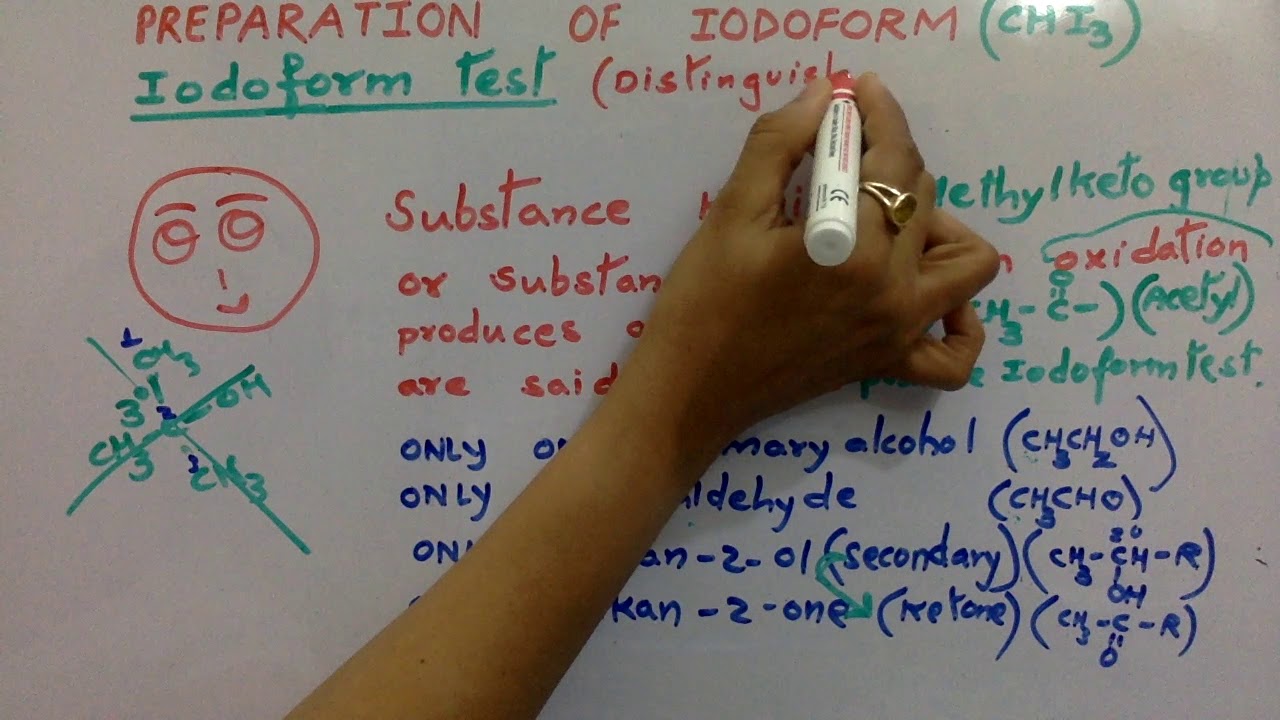 PREPARATION OF IODOFORM (CHI3)
Iodoform test (Distinguish
Substance Methylketo group
or substan oxidation
produces CH3-C-) (Acetyl)
O
are said Iodoform test.
ONLY mary alcohol (CH3CH2OH)
ONLY aldehyde (CH3CHO)
ONL an-2-ol (secondary) (CH3-CH-R)
2°
OH
kan-2-one (Ketone) (CH3-C-R)
O
1
CH3
3
OH
2
C
CH3
3
CH3
CE